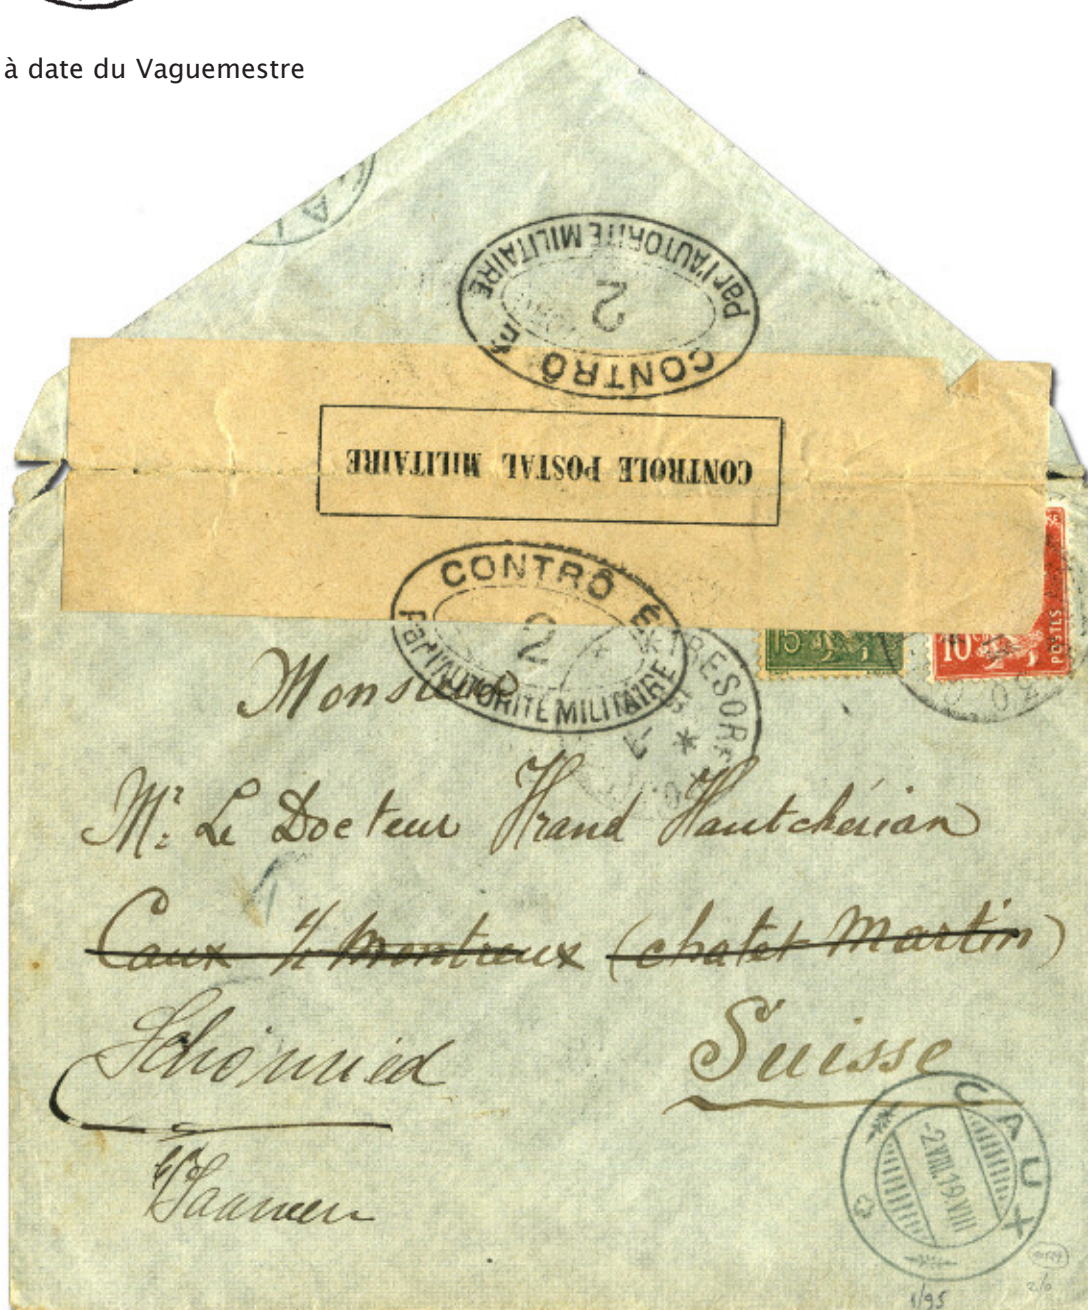 à date du Vaguemestre
Par l'AUTORITÉ MILITAIRE
2
CONTRÔ É
CONTROLE POSTAL MILITAIRE
CONTRÔ É
2
Par l'AUTORITÉ MILITAIRE
TRESOR
15
10c
POSTES
Monsieur
Mr. Le Docteur Hrand Hautchérian
Caux s/ Montreux (chalet Martin)
Schönried
Suisse
b/ Saanen
CAUX
-2.VIII.19.VIII
1/95